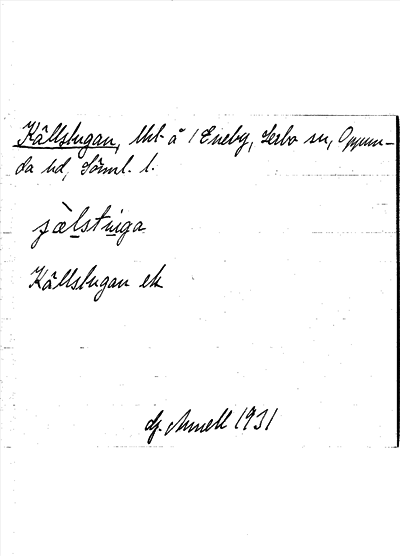 Källstugan, lht å 1 Eneby, Lerbo sn, Oppun-
da hd, Söml. l.
jälstuga
Källstugan ek
1931